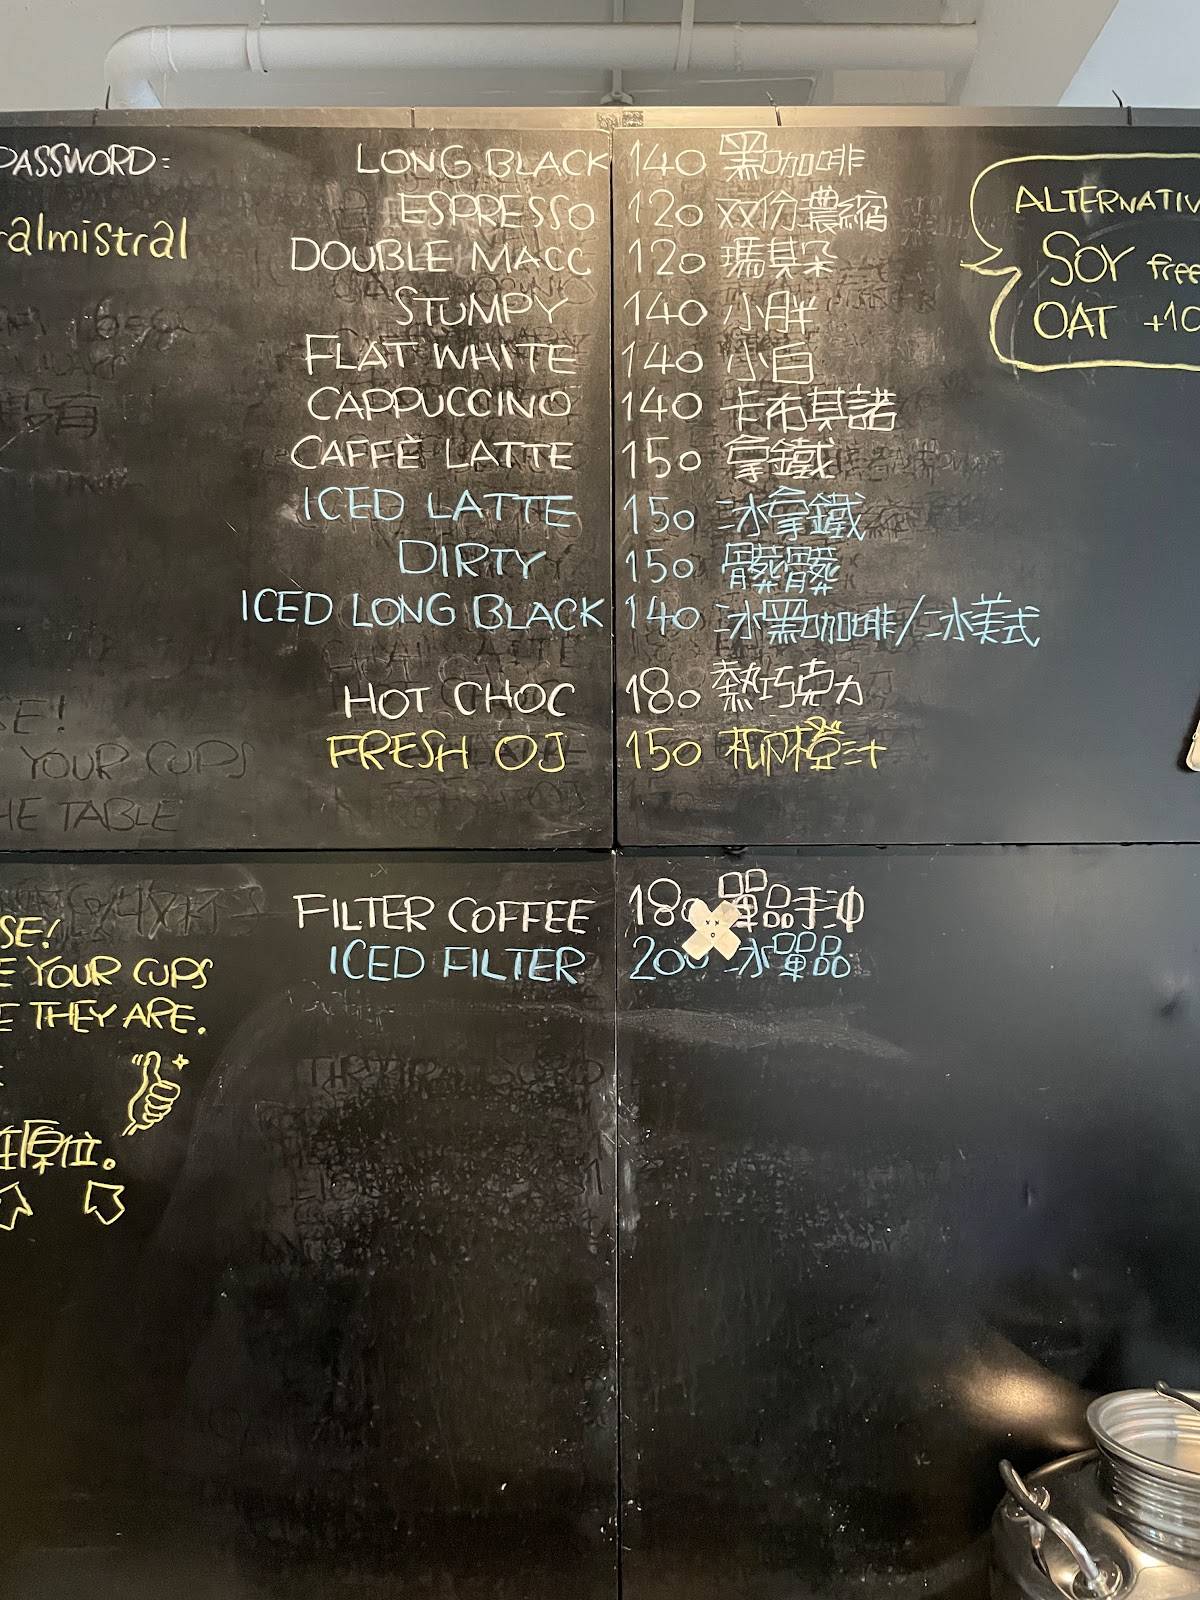 PASSWORD:
ralmistral
LONG BLACK 140 黑咖啡
ESPRESSO 120 双份濃縮
DOUBLE MACC 120 瑪其朵
STUMPY 140 小胖
FLAT WHITE 140 小白
CAPPUCCINO 140 卡布其諾
CAFFÈ LATTE 150 拿鐵
ICED LATTE 150 冰拿鐵
DIRTY 150 髒髒
ICED LONG BLACK 140 冰黑咖啡/冰美式
HOT CHOC 180 熱巧克力
FRESH OJ 150 柳橙汁
ALTERNATIV
SOY free
OAT +10
SE!
YOUR CUPS
HE TABLE
FILTER COFFEE 180 單品手沖
ICED FILTER 200 冰單品
SE!
E YOUR CUPS
E THEY ARE.
在原位。